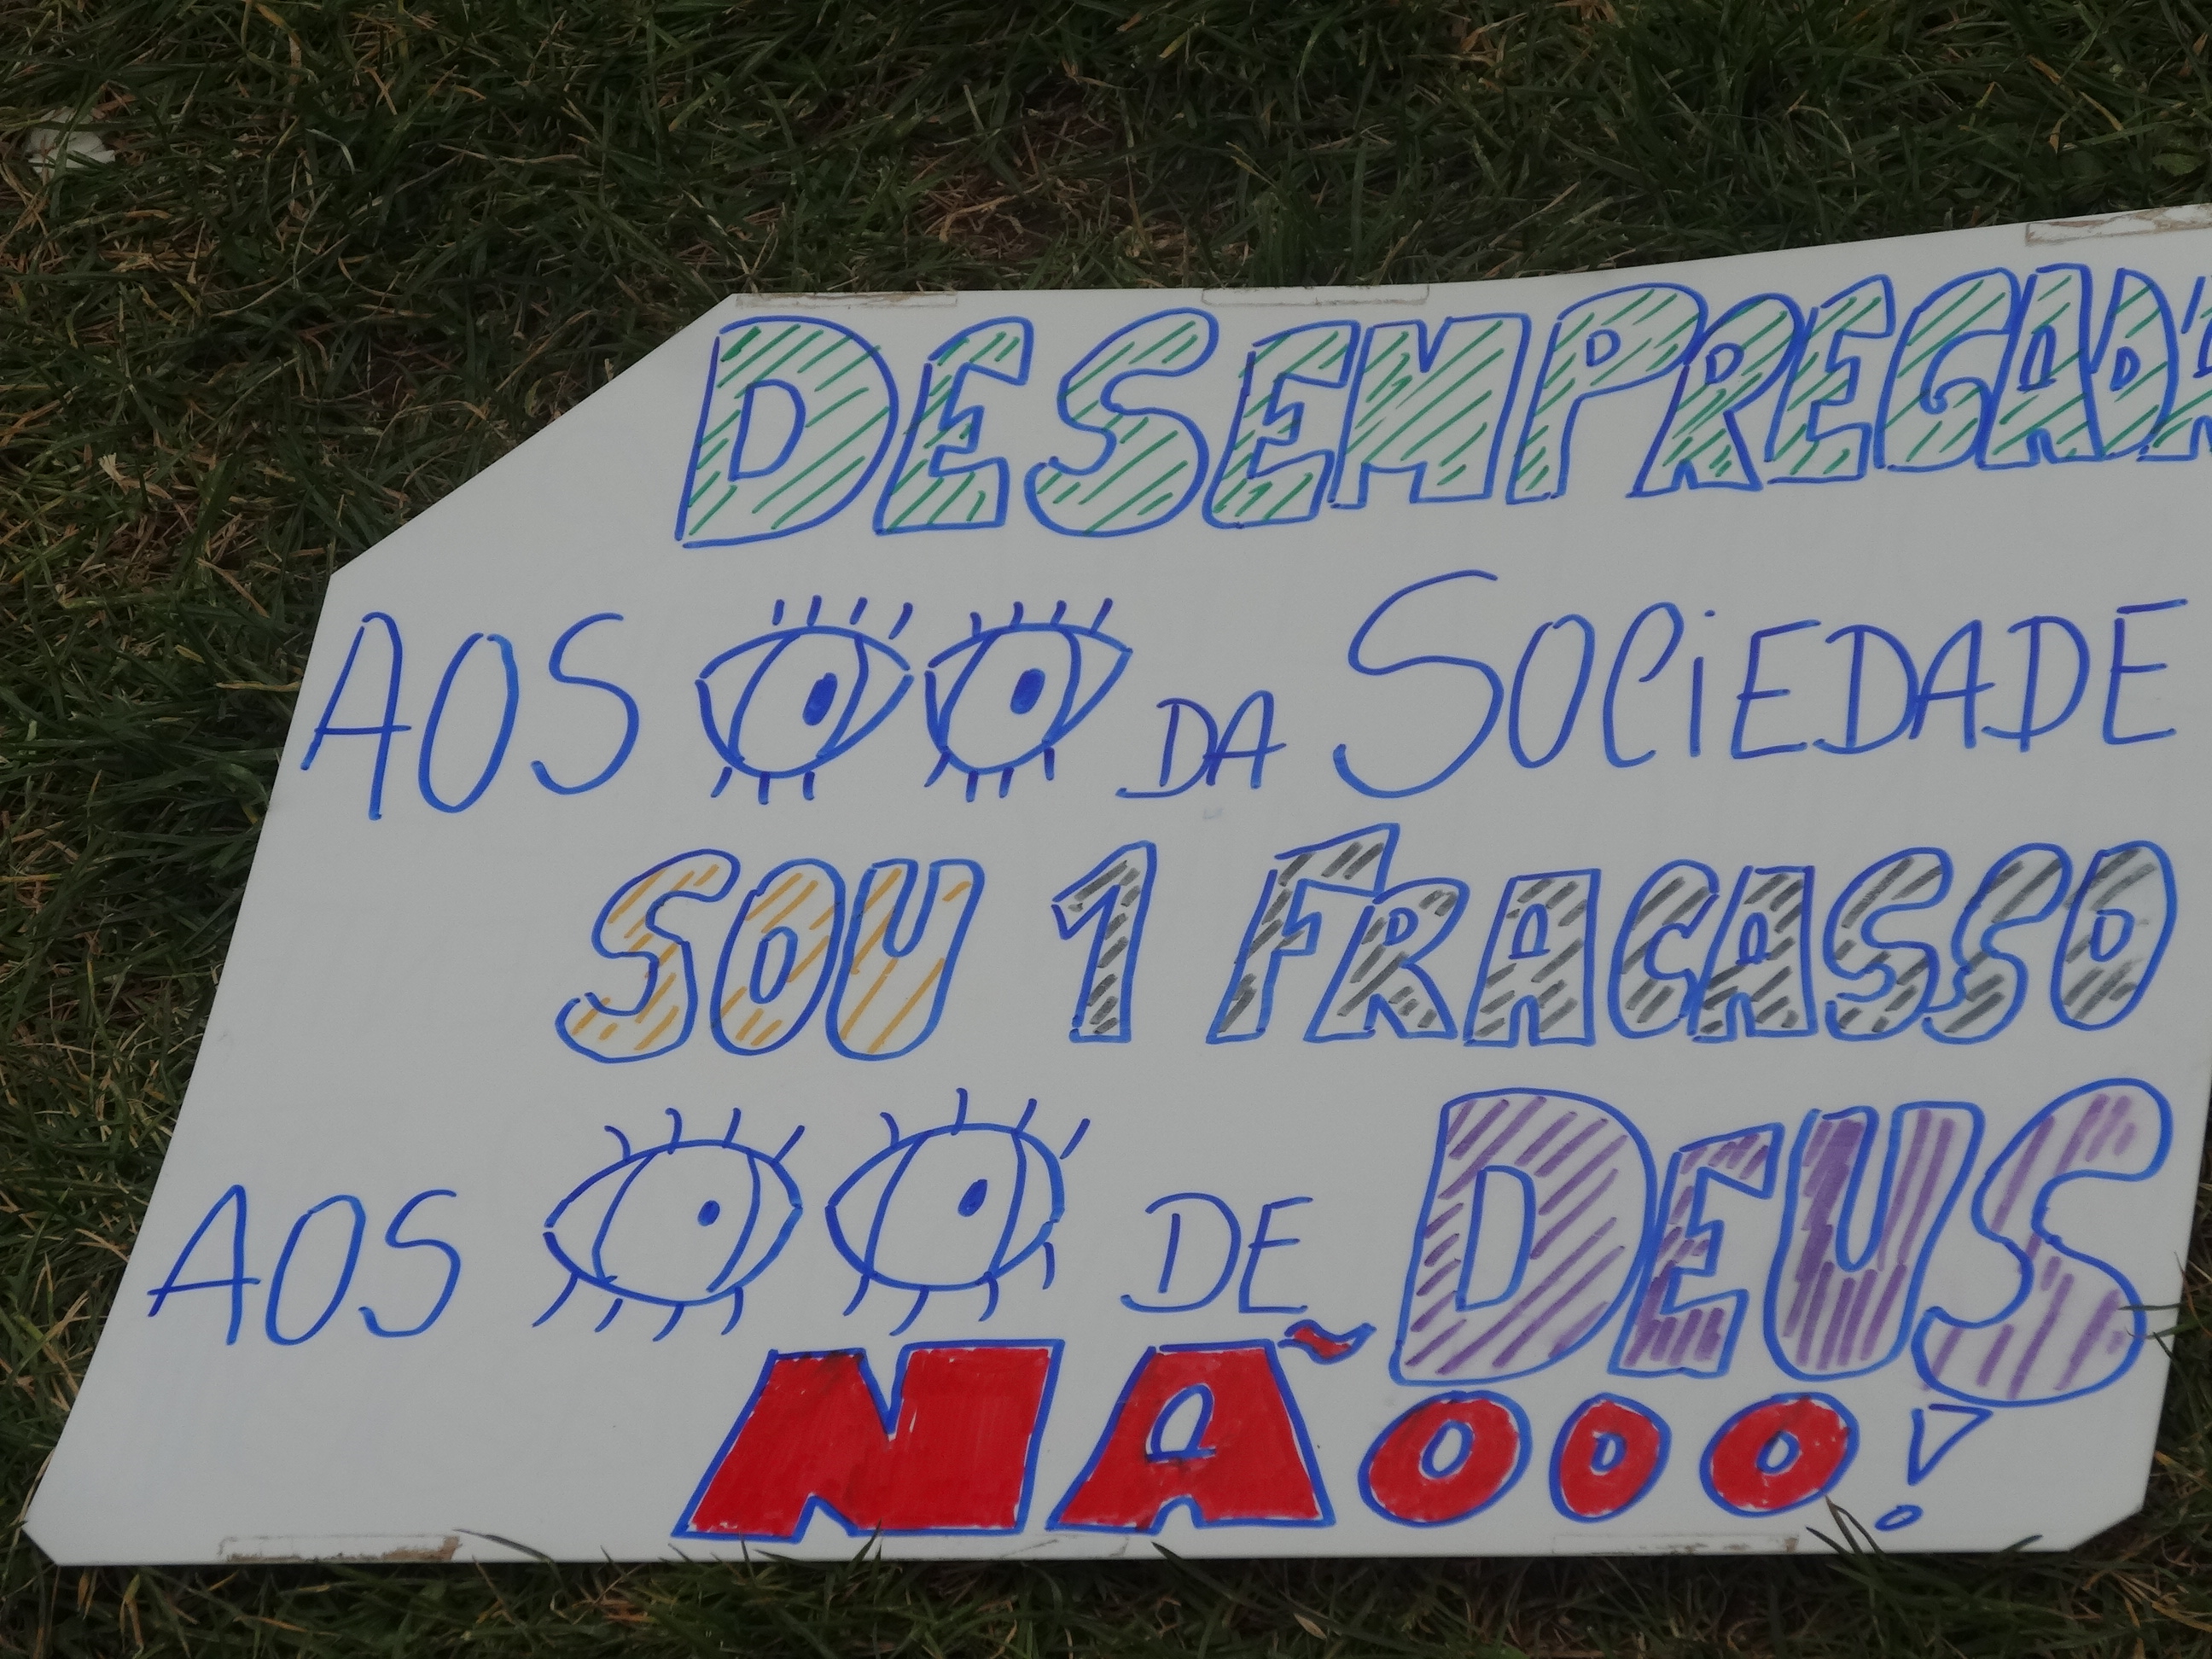 DESEMPREGADA
AOS DA SOCIEDADE
SOU 1 FRACASSO
AOS DE DEUS
NÃOOO!